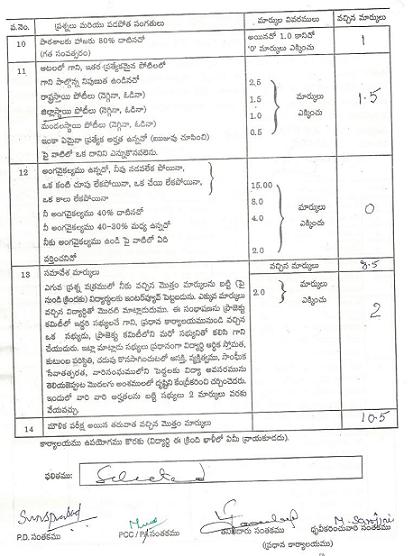 వ.నెం. ప్రశ్నలు మరియు పడపోత పంగతులు మార్కుల వివరములు వచ్చిన మార్కులు
10 పాఠశాలకు హాజరు 80% దాటినదో అయినదో 1.0 కానిదో 1
(గత సంవత్సరం) '0' మార్కులు ఎక్కించు
11 ఆటలలో గాని, ఇతర ప్రత్యేకమైన పోటీలలో
గాని పాల్గొన్న నిపుణత ఉండినదో 2.5
రాష్ట్రస్థాయి పోటీలు (నెగ్గినా, ఓడినా) 1.5 మార్కులు 1.5
జిల్లాస్థాయి పోటీలు (నెగ్గినా, ఓడినా) 1.0 ఎక్కించు
మండలస్థాయి పోటీలు (నెగ్గినా, ఓడినా) 0.5
ఇంకా ఏమైనా ప్రత్యేక అర్హత ఉన్నచో (ఋజువు చూపించి)
పై వాటిలో ఒక దానిని ఎన్నుకొనవలెను.
12 అంగవైకల్యము ఉన్నదో, నీవు నడవలేక పోయినా,
ఒక కంటి చూపు లేకపోయినా, ఒక చేయి లేకపోయినా, 15.00
ఒక కాలు లేకపోయినా 8.0 మార్కులు
నీ అంగవైకల్యము 40% దాటినదో 4.0 ఎక్కించు 0
నీ అంగవైకల్యము 40-30% మధ్య ఉన్నదో
నీకు అంగవైకల్యము ఉండి పై వాటిలో ఏది 2.0
వర్తించనిచో
13 సమావేశ మార్కులు వచ్చిన మార్కులు 8.5
ఎగువ ప్రశ్న పత్రములో నీకు వచ్చిన మొత్తం మార్కులను బట్టి (పై 2.0 మార్కులు
నుండి క్రిందకు) విద్యార్థులకు ఇంటర్వ్యూకే పెట్టబడును. ఎక్కువ మార్కులు ఎక్కించు
వచ్చిన విద్యార్థితో మొదట మాట్లాడుదురు. ఈ సంభాషణను ప్రాజెక్టు 2
కమిటీలో ఇద్దరి సభ్యులచే గాని, ప్రధాన కార్యాలయమునుండి వచ్చిన
ఒక సభ్యుడు, ప్రాజెక్టు కమిటీలోని మరో సభ్యునితో కలిసి గాని
చేయుదురు. ఇట్లా మాట్లాడు సభ్యులు ప్రధానంగా విద్యార్థి ఆర్థిక స్తోమత,
కుటుంబ పరిస్థితి, చదువు కొనసాగించుటలో ఆసక్తి, వ్యక్తిత్వము, సాంఘీక
సేవాతత్పరత, వారిసంఘములోని పెద్దలకు విద్యా అవసరమును
తెలియజెప్పుట మొదలగు అంశములలో దృష్టిని కేంద్రీకరించి చర్చించెదరు.
ఇందులో వారి వారి అర్హతలను బట్టి సభ్యులు 2 మార్కులు వరకు
వేయవచ్చు.
14 మౌఖిక పరీక్ష అయిన తరువాత వచ్చిన మొత్తం మార్కులు 10.5
కార్యాలయము ఉపయోగము కొరకు (విద్యార్థి ఈ క్రింది ఖాళీలో ఏమీ వ్రాయకూడదు).
ఫలితము: Selected
P.D. సంతకము PCC / PA సంతకము తనిఖీదారు సంతకము ధృవీకరించువారి సంతకము
(ప్రధాన కార్యాలయము)